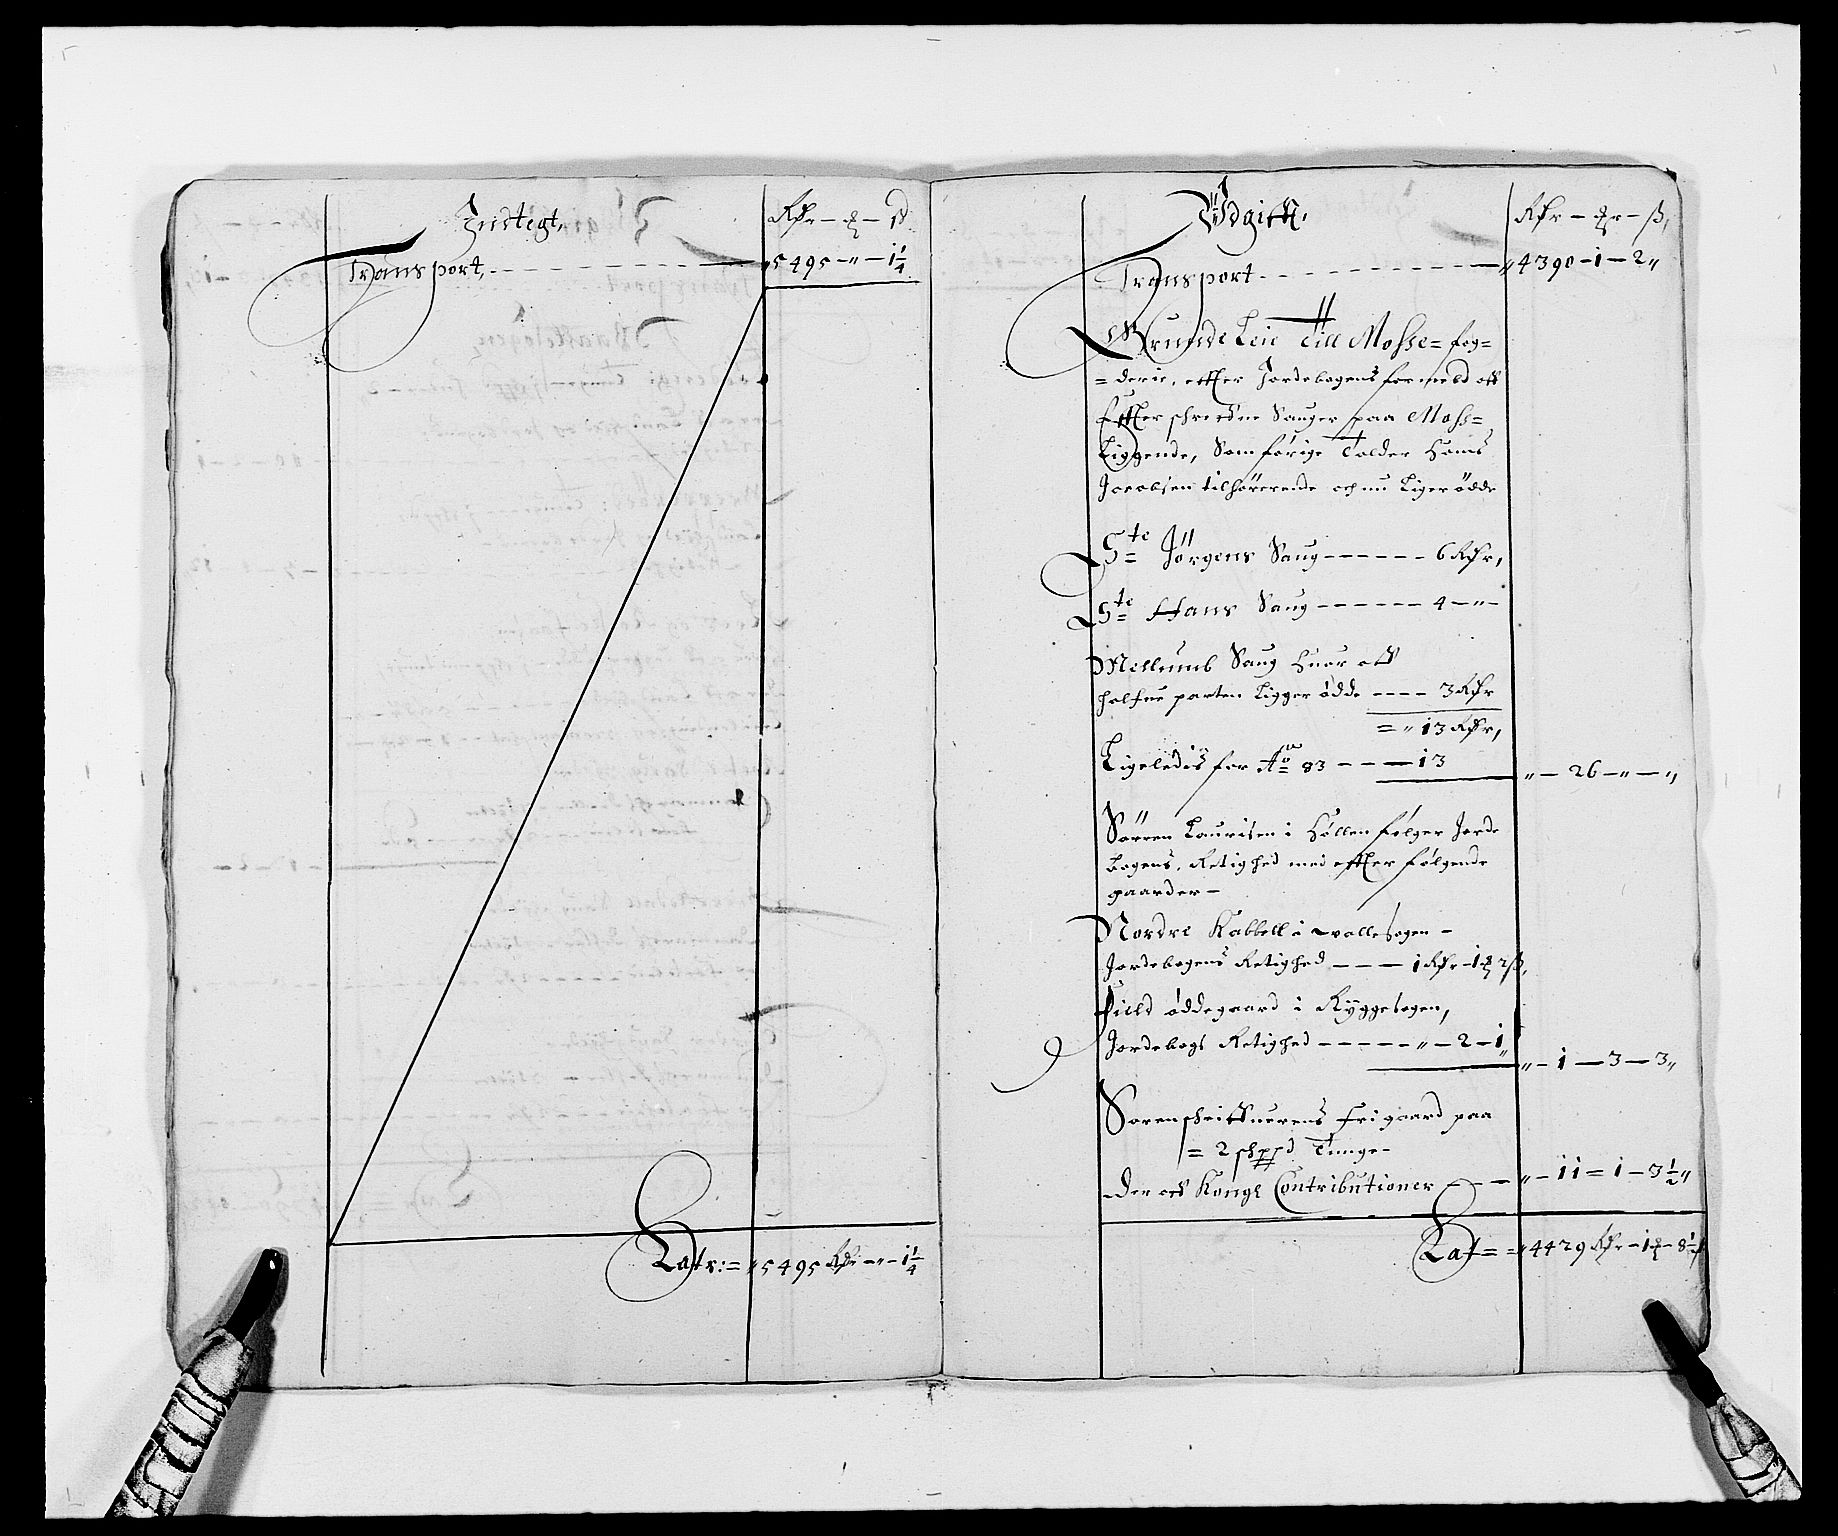 Indtegt,
Rdr – ort – ß
Transport, 5495 – „ – 1 1/4
Latr: = „ 5495 Rdr – „ – 1 1/4
Udgifft,
Rdr – ort – ß,
Transport „ 4390 – 1 – 2 „
Grunde Leie Till Mosse = fog =
= derie, effter Jordebogens formeld aff
Effter schrefdne Sauger paa Moss =
Liggende, Som forige Tolder Hanns
Jacobsen tilhørende och nu Liger ødde
Ste Jørgens Saug – – – – – – 6 Rdr,
Ste Hans Saug – – – – – – 4 – „ –
Mellumb Saug huor aff
halfue parten Ligger ødde – – – – 3 Rdr
= „ 13 Rdr,
Ligeledis for Ao 83 – – – 13 „ – 26 – „ – „
Sørren Lauritsen i Høllen følger Jorde
bogens, Retighed med effter følgende
gaarder –
Nordre Kabbell i Wollesogen –
Jordebogens Retighed – – – 1 Rdr – 1 ort 2 ß,
Field øddegaard i Ryggesogen,
Jordebogs Retighed – – – – – „ – 2 – 1 „ – 1 – 3 – 3 „
Sorenschriffuerens frigaard paa
= 2 schpd Tunge –
der aff Kongl Contributioner – – – „ – 11 = 1 – 3 1/2 „
Lat = = „ 4429 Rdr – 1 ort – 8 1/2 ß